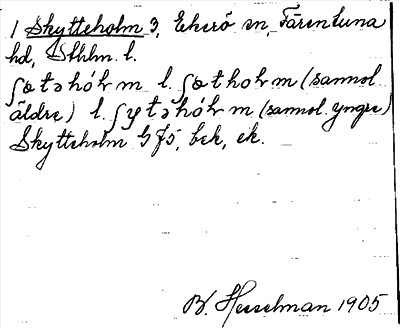 1 Skytteholm 3, Ekerö sn, Färentuna
hd, Sthlm. l.
ʃøtəhóɫm l. ʃøthoɫm (sannol.
äldre) l. ʃytəhóɫm (sannol. yngre)
Skytteholm GJ5, bek, ek.
B. Hesselman 1905